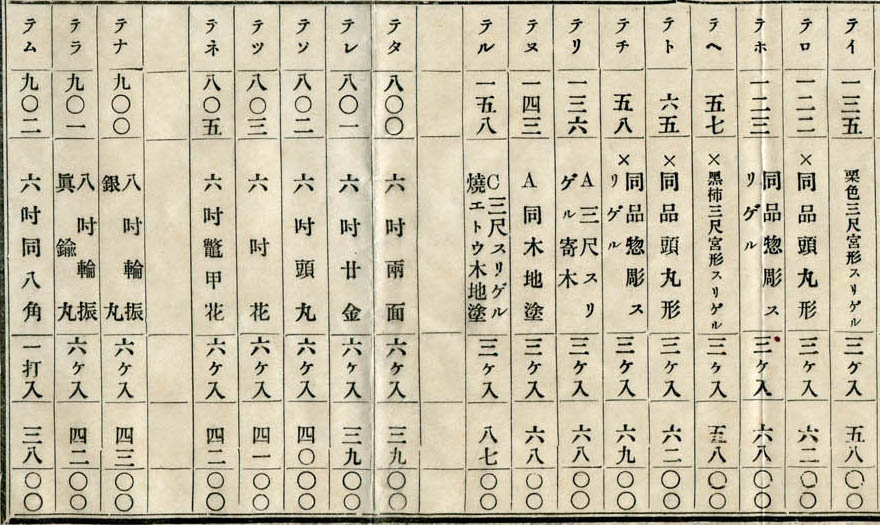 テイ 一三五 栗色三尺宮形スリゲル 三ケ入 五八〇〇
テロ 一二二 ×同品頭丸形 三ケ入 六二〇〇
テホ 一二三 同品惣彫スリゲル 三ケ入 六八〇〇
テヘ 五七 ×黒柿三尺宮形スリゲル 三ケ入 五八〇〇
テト 六五 ×同品頭丸形 三ケ入 六二〇〇
テチ 五八 ×同品惣彫スリゲル 三ケ入 六九〇〇
テリ 一三六 A三尺スリゲル寄木 三ケ入 六八〇〇
テヌ 一四三 A同木地塗 三ケ入 六八〇〇
テル 一五八 C三尺スリゲル燒エトウ木地塗 三ケ入 八七〇〇
テタ 八〇〇 六吋兩面 六ケ入 三九〇〇
テレ 八〇一 六吋廿金 六ケ入 三九〇〇
テソ 八〇二 六吋頭丸 六ケ入 四〇〇〇
テツ 八〇三 六吋花 六ケ入 四一〇〇
テネ 八〇五 六吋鼈甲花 六ケ入 四二〇〇
テナ 九〇〇 八吋輪振銀丸 六ケ入 四三〇〇
テラ 九〇一 八吋輪振眞鍮丸 六ケ入 四二〇〇
テム 九〇二 六吋同八角 一打入 三八〇〇